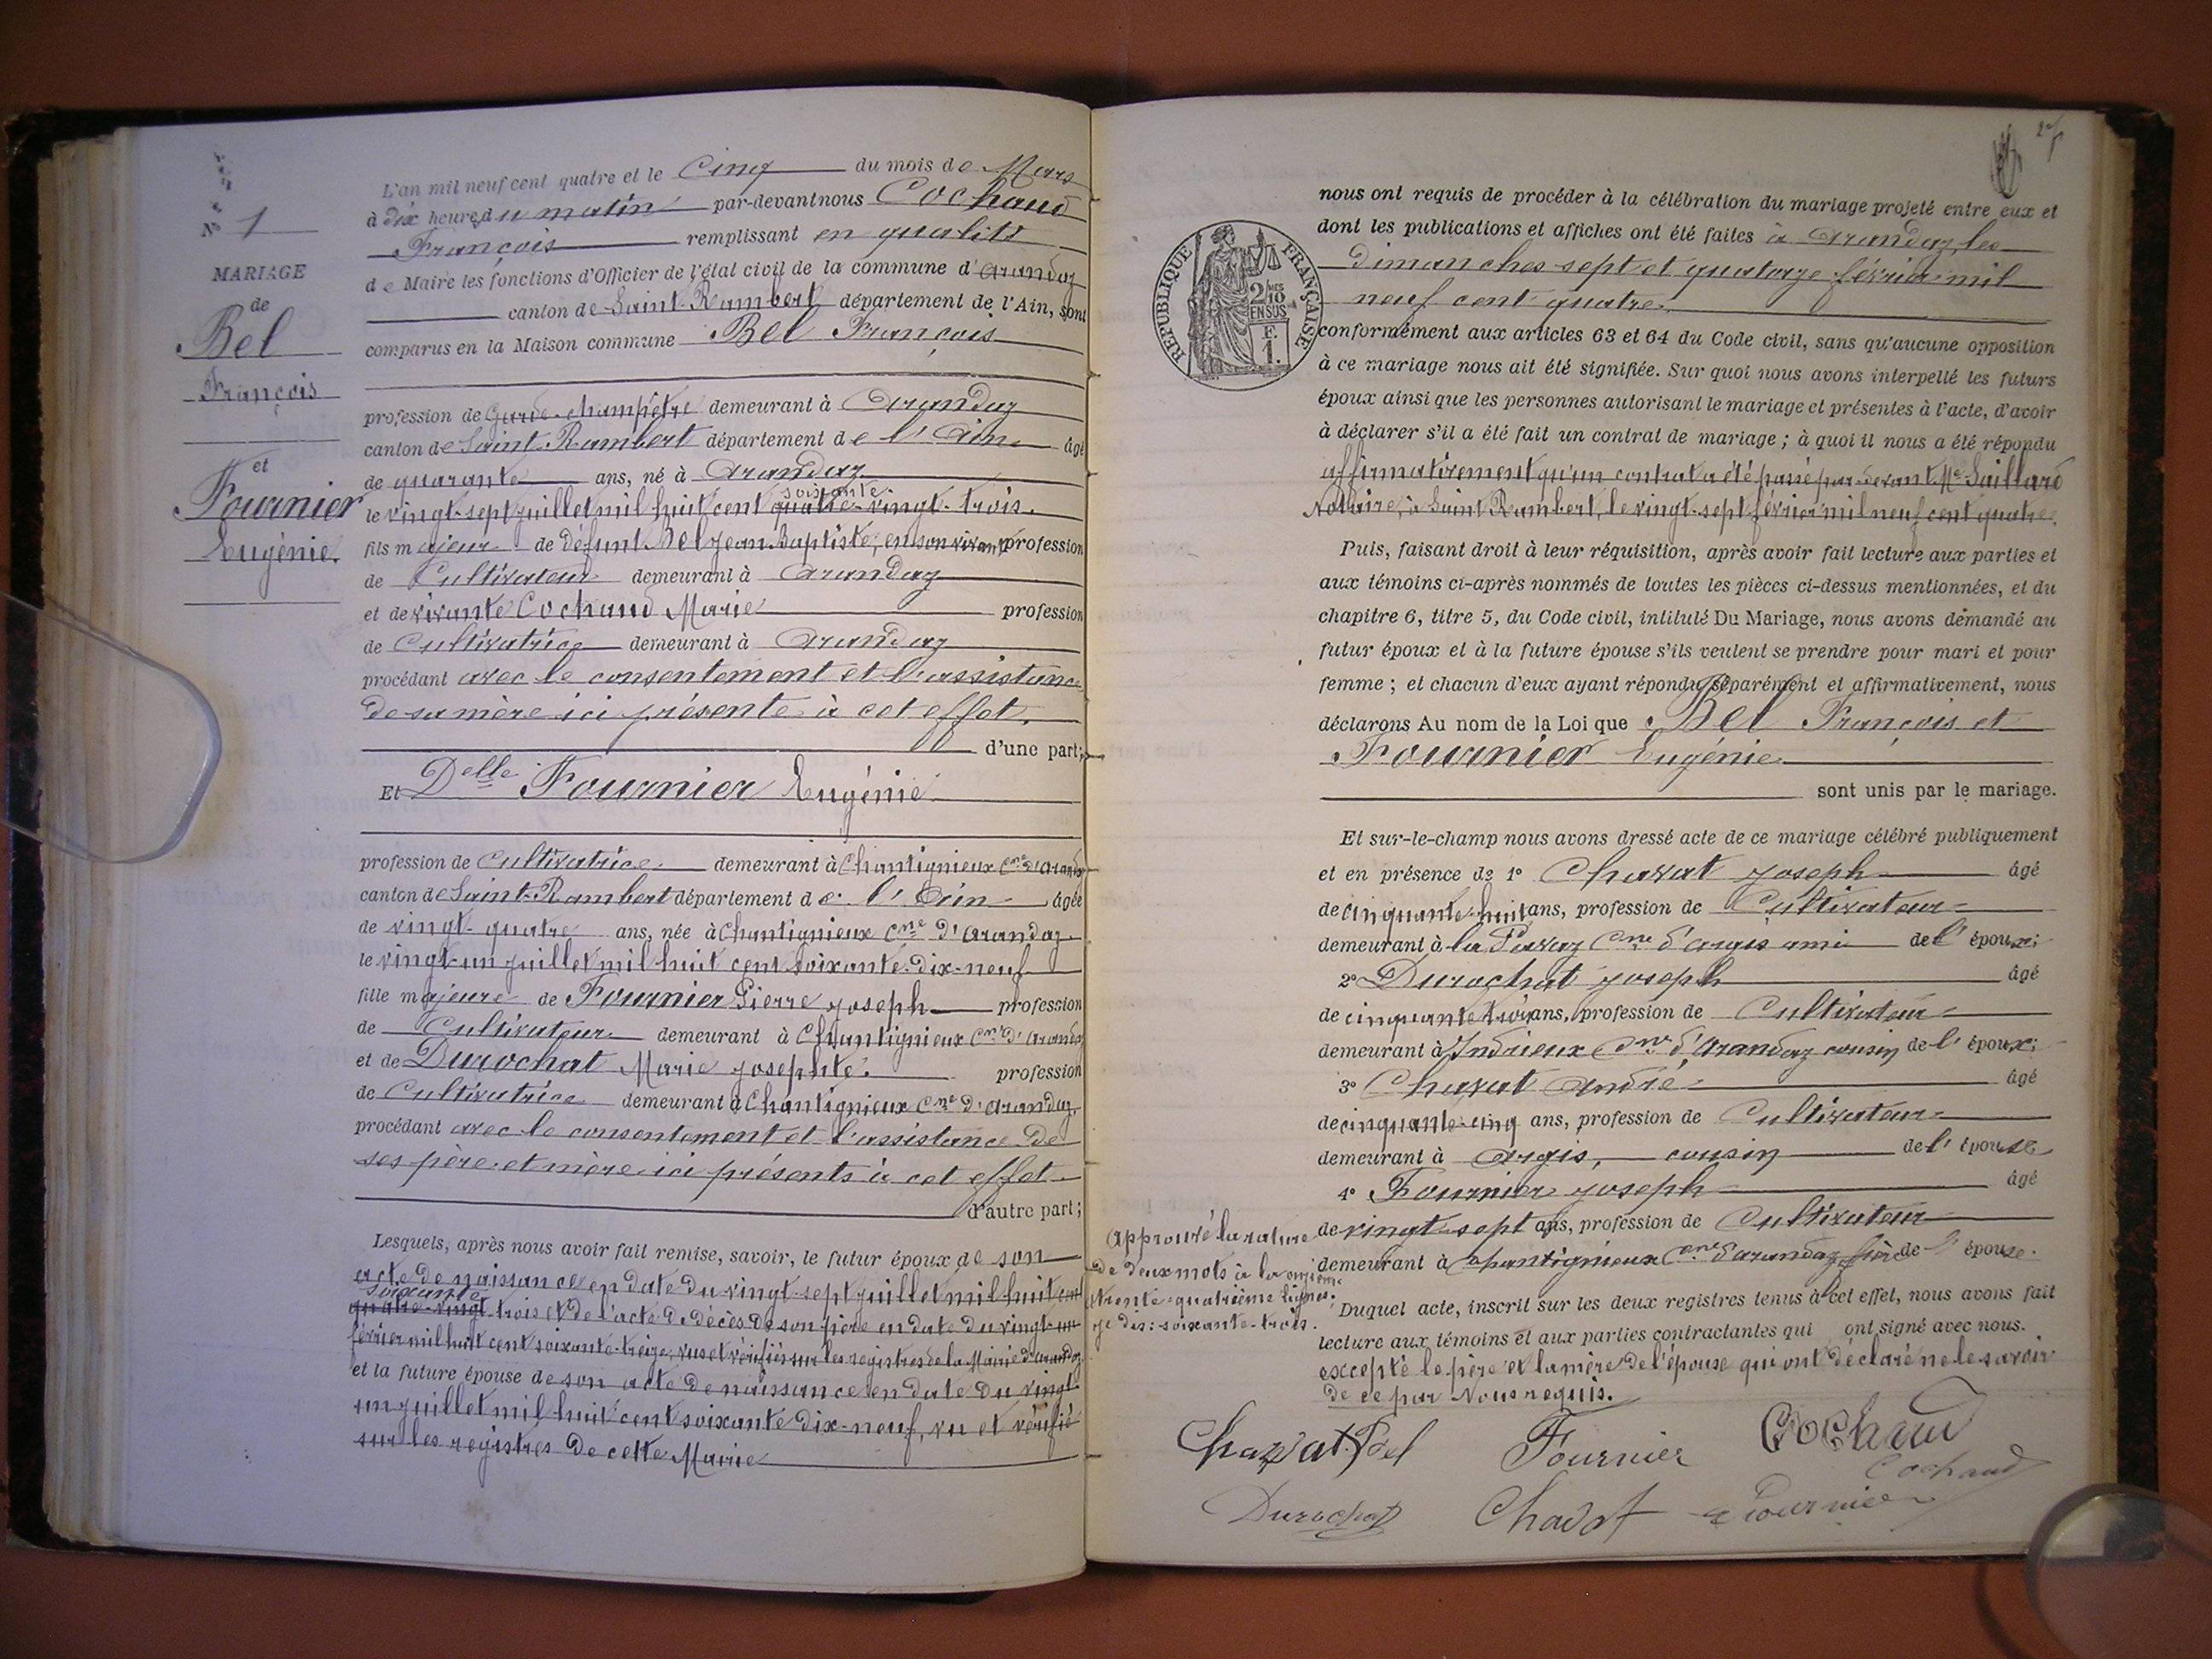 N° 1
MARIAGE
de
Bel
François
et
Fournier
Eugénie.
L'an mil neuf cent quatre et le Cinq du mois de Mars
à dix heures du matin par-devant nous Cochaud
François remplissant en qualité
de Maire les fonctions d'Officier de l'état civil de la commune d'Arandaz
canton de Saint-Rambert département de l'Ain, sont
comparus en la Maison commune Bel François
profession de Garde-champêtre demeurant à Arandaz
canton de Saint-Rambert département de l'Ain âgé
de quarante ans, né à Arandaz
soixante
le vingt-sept juillet mil huit cent quatre-vingt-trois.
fils majeur de défunt Bel Jean Baptiste, en son vivant profession
de Cultivateur demeurant à Arandaz
et de vivante Cochaud Marie profession
de Cultivatrice demeurant à Arandaz
procédant avec le consentement et l'assistance
de sa mère ici présente à cet effet.
d'une part;
Et Delle Fournier Eugénie
profession de Cultivatrice demeurant à Chantignieux Cne d'Arandaz
canton de Saint-Rambert département de l'Ain âgée
de vingt-quatre ans, née à Chantignieux Cne d'Arandaz
le vingt-un juillet mil huit cent soixante-dix-neuf
fille majeure de Fournier Pierre Joseph profession
de Cultivateur demeurant à Chantignieux Cne d'Arandaz
et de Durochat Marie Josephte. profession
de Cultivatrice demeurant à Chantignieux Cne d'Arandaz
procédant avec le consentement et l'assistance de
ses père et mère ici présents à cet effet
d'autre part;
Lesquels, après nous avoir fait remise, savoir, le futur époux de son
acte de naissance en date du vingt-sept juillet mil huit cent
soixante
quatre-vingt-trois et de l'acte de décès de son père en date du vingt-un
février mil huit cent soixante-treize, vus et vérifiés sur les registres de la Mairie d'Arandaz
et la future épouse de son acte de naissance en date du vingt-
un juillet mil huit cent soixante dix-neuf, vu et vérifié
sur les registres de cette Mairie
RÉPUBLIQUE FRANÇAISE
2/10 MES
EN SUS
F.
1.
nous ont requis de procéder à la célébration du mariage projeté entre eux et
dont les publications et affiches ont été faites à Arandaz, les
dimanches sept et quatorze février mil
neuf cent quatre.
conformément aux articles 63 et 64 du Code civil, sans qu'aucune opposition
à ce mariage nous ait été signifiée. Sur quoi nous avons interpellé les futurs
époux ainsi que les personnes autorisant le mariage et présentes à l'acte, d'avoir
à déclarer s'il a été fait un contrat de mariage; à quoi il nous a été répondu
affirmativement qu'un contrat a été passé par-devant Me Saillard
Notaire, à Saint Rambert, le vingt-sept février mil neuf cent quatre.
Puis, faisant droit à leur réquisition, après avoir fait lecture aux parties et
aux témoins ci-après nommés de toutes les pièces ci-dessus mentionnées, et du
chapitre 6, titre 5, du Code civil, intitulé Du Mariage, nous avons demandé au
futur époux et à la future épouse s'ils veulent se prendre pour mari et pour
femme; et chacun d'eux ayant répondu séparément et affirmativement, nous
déclarons Au nom de la Loi que Bel François et
Fournier Eugénie
sont unis par le mariage.
Et sur-le-champ nous avons dressé acte de ce mariage célébré publiquement
et en présence de 1° Chavat Joseph âgé
de cinquante-huit ans, profession de Cultivateur
demeurant à la Cne d'Argis ami de l'époux;
2° Durochat Joseph âgé
de cinquante trois ans, profession de Cultivateur
demeurant à Indrieux Cne d'Arandaz cousin de l'époux;
3° Chavat André âgé
de cinquante-cinq ans, profession de Cultivateur
demeurant à Argis, cousin de l'épouse
4° Fournier Joseph âgé
de vingt-sept ans, profession de Cultivateur
demeurant à Chantignieux Cne d'Arandaz frère de l'épouse.
Duquel acte, inscrit sur les deux registres tenus à cet effet, nous avons fait
lecture aux témoins et aux parties contractantes qui ont signé avec nous.
excepté le père et la mère de l'épouse qui ont déclaré ne le savoir
de ce par Nous requis.
Approuvé la rature
de deux mots à la onzième
trente-quatrième lignes.
je dis: soixante-trois.
Chavat Bel Fournier Cochaud
Cochaud
Durochat Chavat Fournier